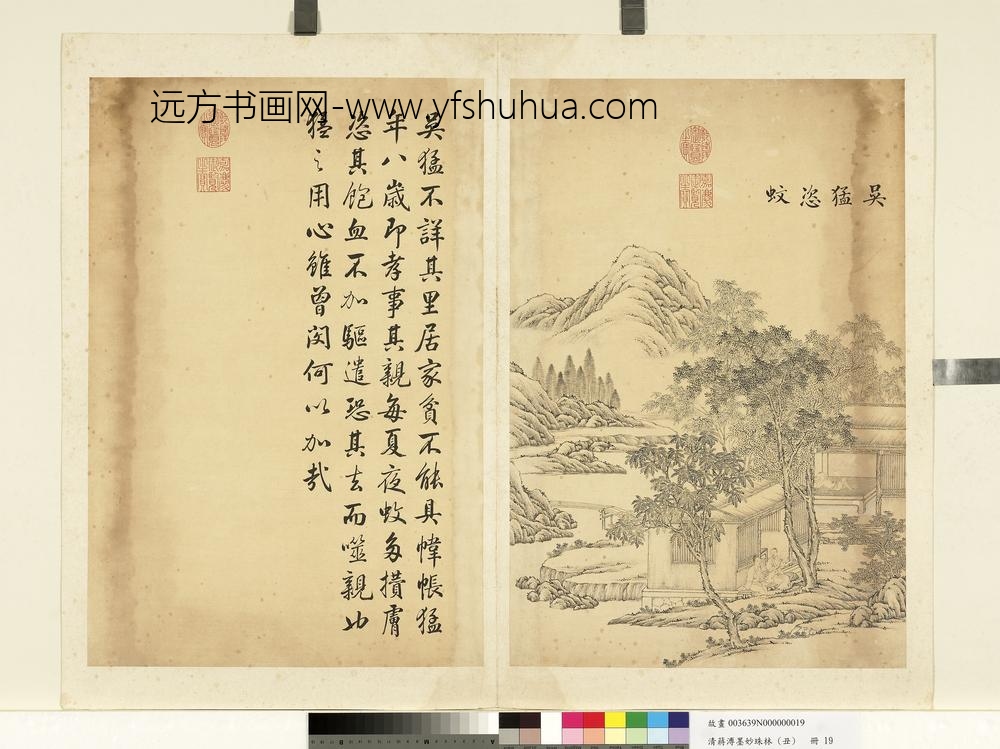 远方书画网-www.yfshuhua.com
吳猛恣蚊
吳猛不詳其里居家貧不能具幃帳猛
年八歲即孝事其親每夏夜蚊多攢膚
恣其飽血不加驅遣恐其去而噬親也
猛之用心雖曾閔何以加哉
故畫 003639N000000019
清蔣溥墨妙珠林（丑） 冊 19